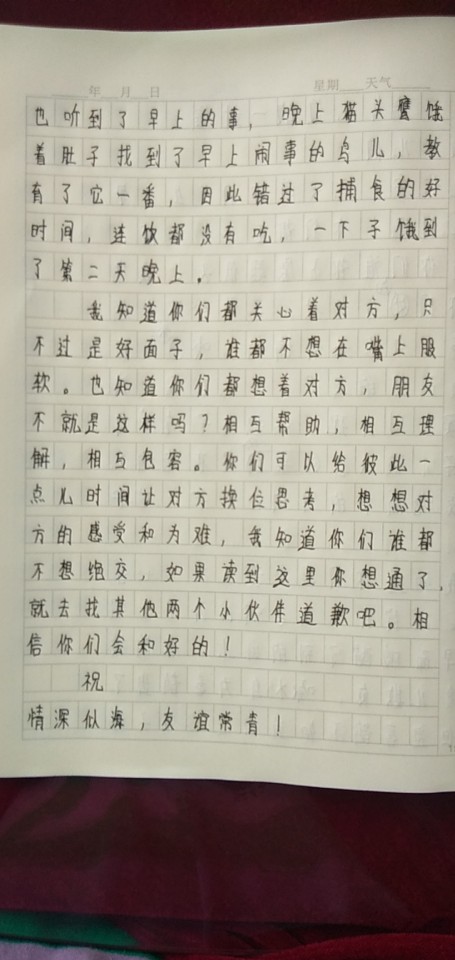 年 月 日 星期 天气
也听到了早上的事，晚上猫头鹰饿
着肚子找到了早上闹事的鸟儿，教
有了它一番，因此错过了捕食的好
时间，连饮都没有吃，一下子饿到
了第二天晚上。
我知道你们都关心着对方，只
不过是好面子，谁都不想在嘴上服
软。也知道你们都想着对方，朋友
不就是这样吗？相互帮助，相互理
解，相互包容。你们可以给彼此一
点儿时间让对方换位思考，想想对
方的感受和为难，我知道你们谁都
不想绝交，如果读到这里你想通了，
就去找其他两个小伙伴道歉吧。相
信你们会和好的！
祝
情深似海，友谊常青！